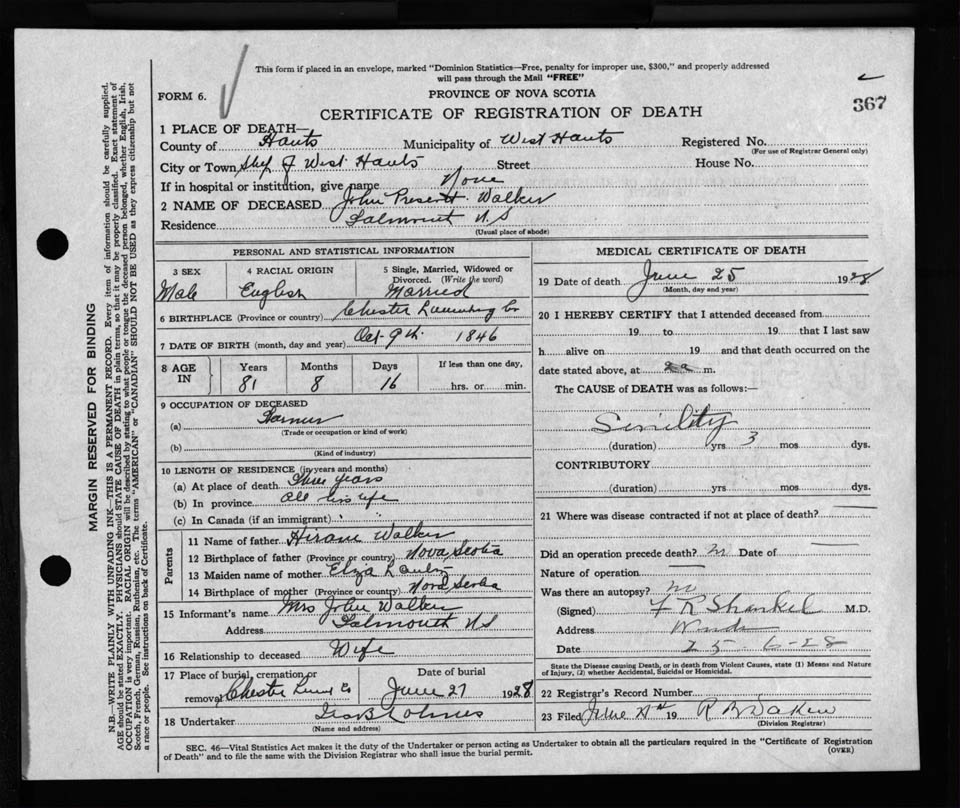 This form if placed in an envelope, marked "Dominion Statistics—Free, penalty for improper use, $300," and properly addressed
will pass through the Mail "FREE"
FORM 6.
PROVINCE OF NOVA SCOTIA
367
CERTIFICATE OF REGISTRATION OF DEATH
1 PLACE OF DEATH—
County of Hants Municipality of West Hants Registered No.
(For use of Registrar General only)
City or Town of West Hants Street House No.
If in hospital or institution, give name None
2 NAME OF DECEASED John Walker
Residence Falmouth N.S
(Usual place of abode)
PERSONAL AND STATISTICAL INFORMATION
3 SEX 4 RACIAL ORIGIN 5 Single, Married, Widowed or Divorced. (Write the word)
Male English Married
6 BIRTHPLACE (Province or country) Chester Co
7 DATE OF BIRTH (month, day and year) Oct 9th 1846
8 AGE IN Years Months Days If less than one day,
81 8 16 hrs. or min.
9 OCCUPATION OF DECEASED
(a) Farmer
(Trade or occupation or kind of work)
(b)
(Kind of industry)
10 LENGTH OF RESIDENCE (in years and months)
(a) At place of death years
(b) In province All his life
(c) In Canada (if an immigrant)
Parents
11 Name of father Hiram Walker
12 Birthplace of father (Province or country) Nova Scotia
13 Maiden name of mother
14 Birthplace of mother (Province or country) Nova Scotia
15 Informant's name Mrs John Walker
Address Falmouth NS
16 Relationship to deceased Wife
17 Place of burial, cremation or removal Chester Co
Date of burial June 27 1928
18 Undertaker
(Name and address)
MEDICAL CERTIFICATE OF DEATH
19 Date of death June 25 1928
(Month, day and year)
20 I HEREBY CERTIFY that I attended deceased from
19 to 19 that I last saw
h alive on 19 and that death occurred on the
date stated above, at m.
The CAUSE of DEATH was as follows:—
Sinility
(duration) yrs 3 mos dys.
CONTRIBUTORY
(duration) yrs mos dys.
21 Where was disease contracted if not at place of death?
Did an operation precede death? Date of
Nature of operation
Was there an autopsy? no
(Signed) F R Shankel M.D.
Address
Date 25-6-28
State the Disease causing Death, or in death from Violent Causes, state (1) Means and Nature
of Injury, (2) whether Accidental, Suicidal or Homicidal.
22 Registrar's Record Number
23 Filed June 19
(Division Registrar)
SEC. 46—Vital Statistics Act makes it the duty of the Undertaker or person acting as Undertaker to obtain all the particulars required in the "Certificate of Registration
of Death" and to file the same with the Division Registrar who shall issue the burial permit.
(OVER)
MARGIN RESERVED FOR BINDING
N.B.—WRITE PLAINLY WITH UNFADING INK—THIS IS A PERMANENT RECORD. Every item of information should be carefully supplied.
AGE should be stated EXACTLY. PHYSICIANS should STATE CAUSE OF DEATH in plain terms, so that it may be properly classified. Exact statement of
OCCUPATION is very important. RACIAL ORIGIN will be described by stating to what people or tongue the deceased person belonged, whether English, Irish,
Scotch, French, German, Russian, Ruthenian, etc. The terms "AMERICAN" or "CANADIAN" SHOULD NOT BE USED as they express citizenship but not
a race or people. See instructions on back of Certificate.